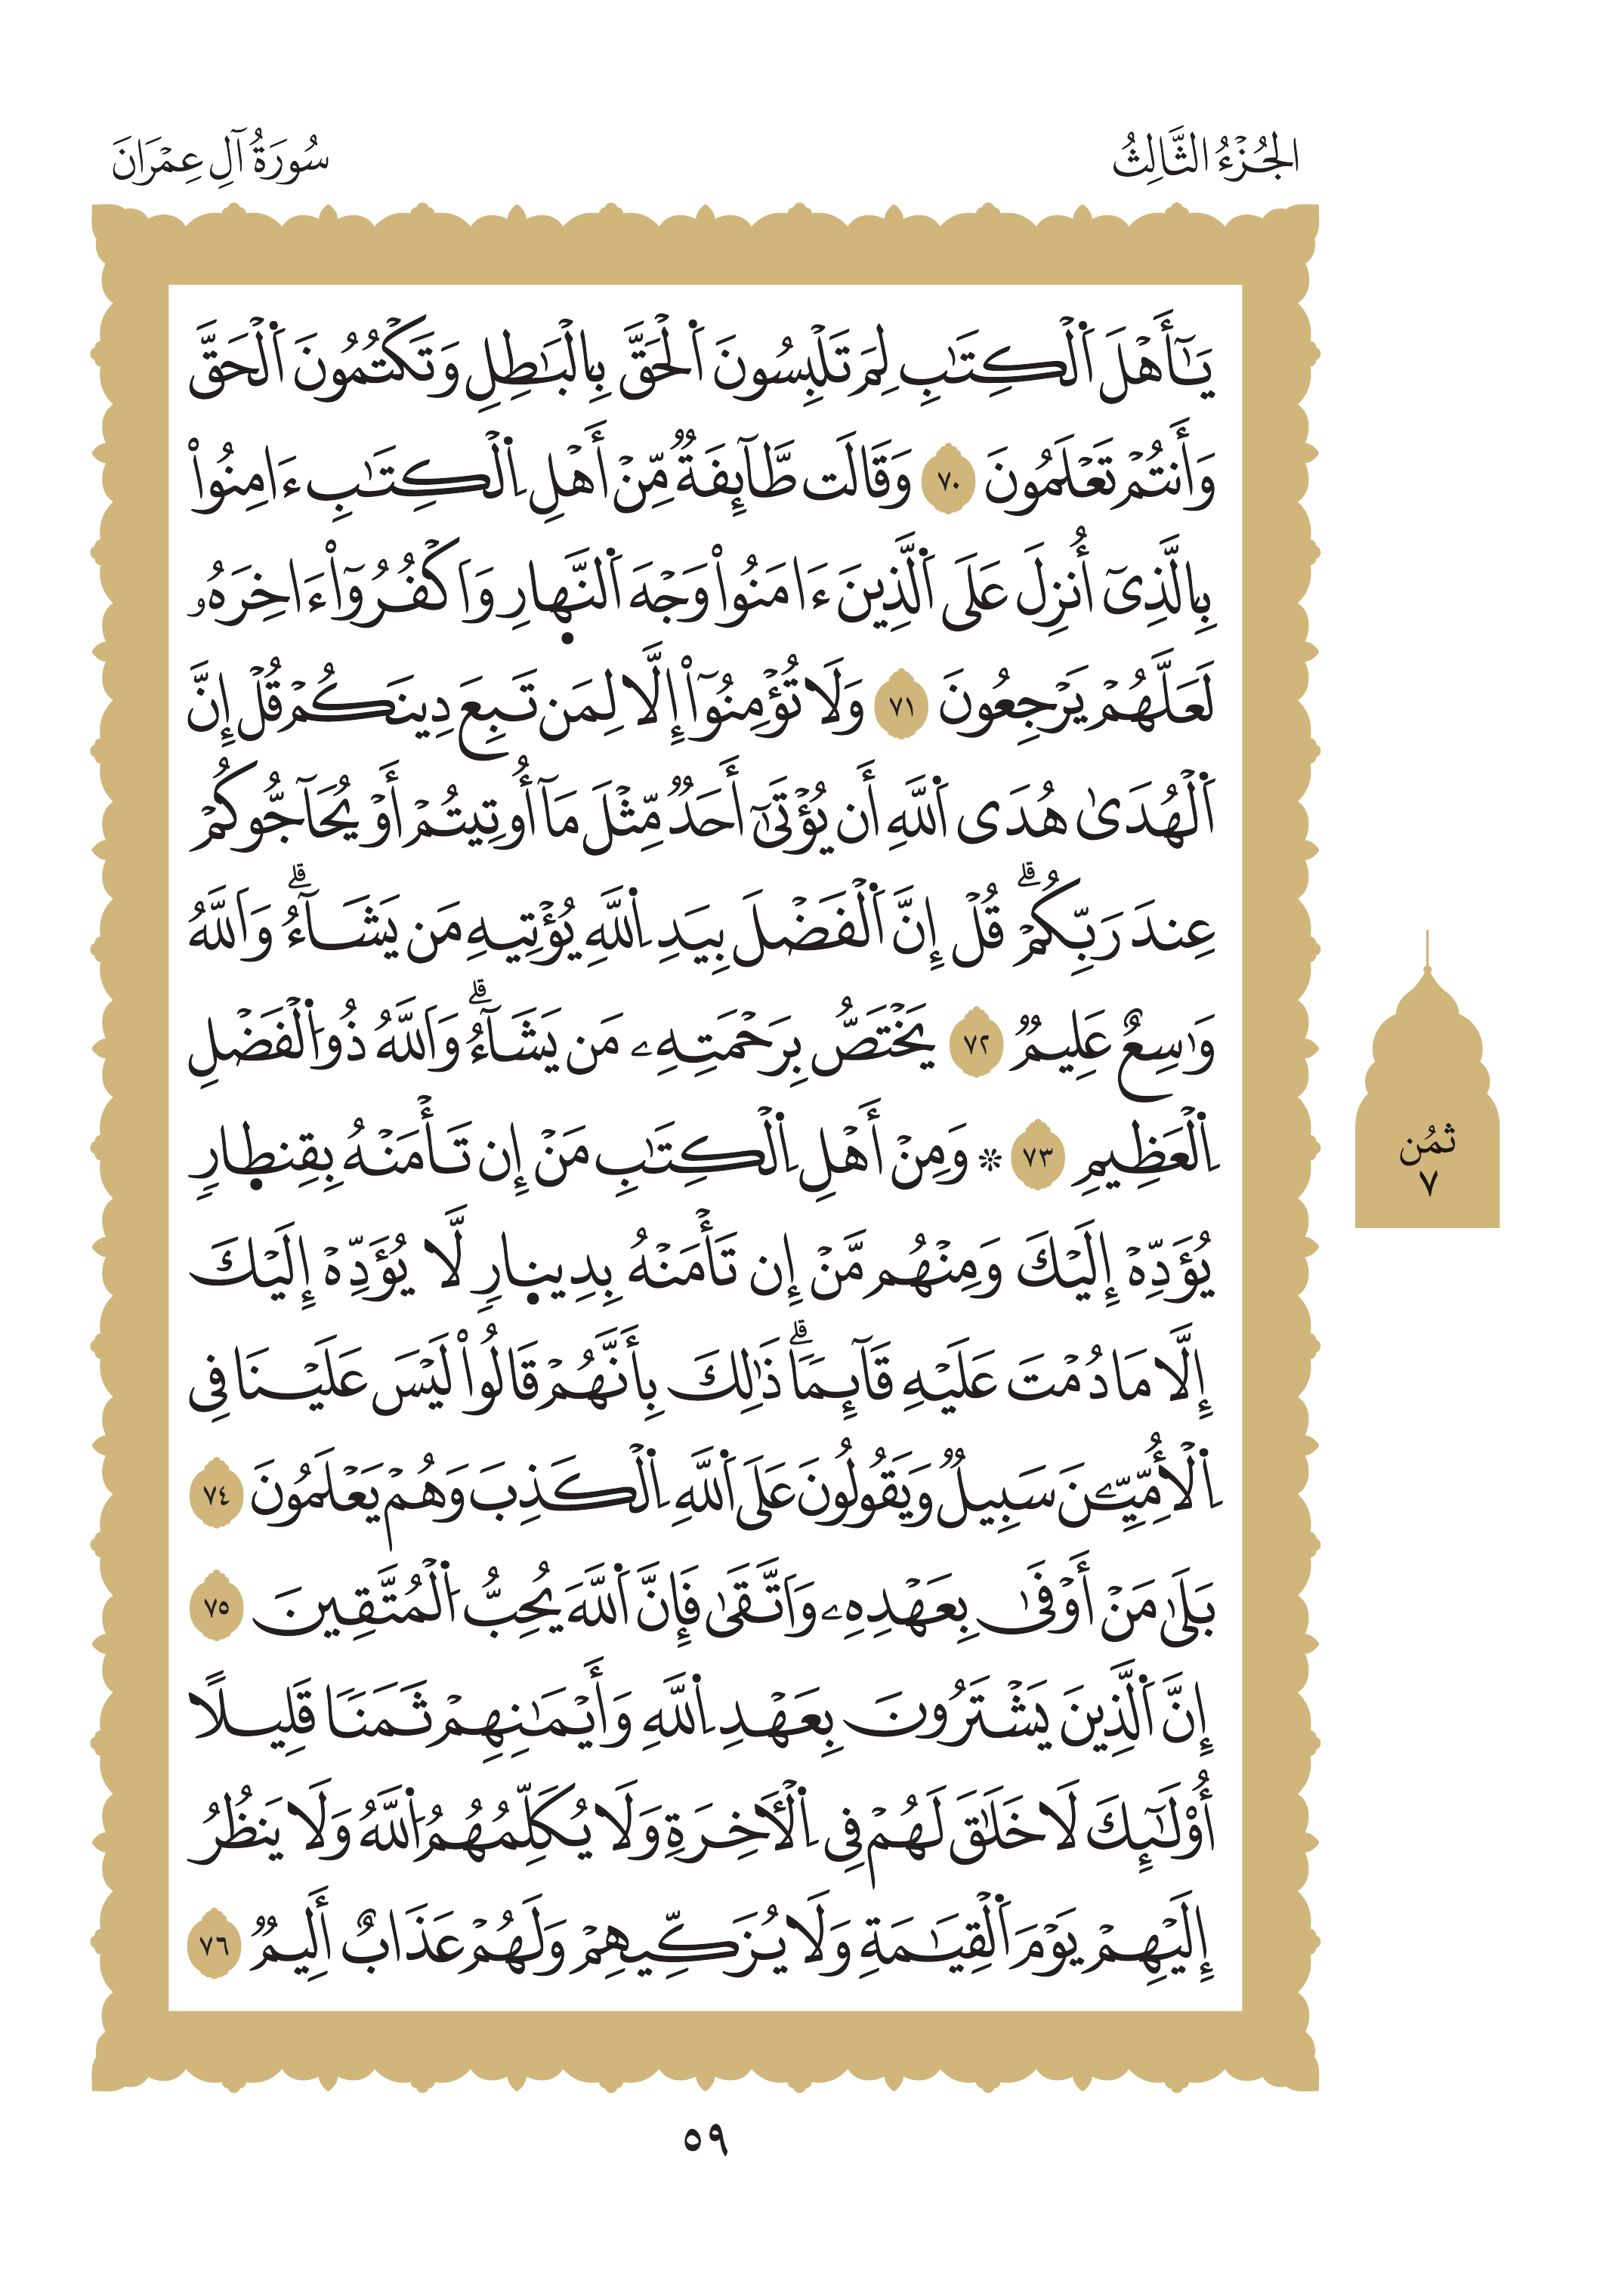 الجُزْءُ الثَّالِثُ
سُورَةُ آلِ عِمْرَانَ
يَٰٓأَهْلَ اَ۬لْكِتَٰبِ لِمَ تَلْبِسُونَ اَ۬لْحَقَّ بِالْبَٰطِلِ وَتَكْتُمُونَ اَ۬لْحَقَّ
وَأَنتُمْ تَعْلَمُونَ ٧٠ وَقَالَت طَّآئِفَةٞ مِّنْ أَهْلِ اِ۬لْكِتَٰبِ ءَامِنُواْ
بِالَّذِىٓ أُنزِلَ عَلَى اَ۬لَّذِينَ ءَامَنُواْ وَجْهَ اَ۬لنَّه۪ارِ وَاَكْفُرُوٓاْ ءَاخِرَهُۥ
لَعَلَّهُمْ يَرْجِعُونَ ٧١ وَلَا تُؤْمِنُوٓاْ إِلَّا لِمَن تَبِعَ دِينَكُمْ قُلْ إِنَّ
اَ۬لْهُدَىٰ هُدَى اَ۬للَّهِ أَن يُؤْتَىٰٓ أَحَدٞ مِّثْلَ مَآ أُوتِيتُمْ أَوْ يُحَآجُّوكُمْ
عِندَ رَبِّكُمْۗ قُلْ إِنَّ اَ۬لْفَضْلَ بِيَدِ اِ۬للَّهِ يُؤْتِيهِ مَن يَشَآءُۗ وَاَللَّهُ
وَٰسِعٌ عَلِيمٞ ٧٢ يَخْتَصُّ بِرَحْمَتِهِۦ مَن يَشَآءُۗ وَاَللَّهُ ذُو اُ۬لْفَضْلِ
اِ۬لْعَظِيمِ ٧٣ ۞ وَمِنْ أَهْلِ اِ۬لْكِتَٰبِ مَنْ إِن تَأْمَنْهُ بِقِنط۪ارٖ
يُؤَدِّهْ إِلَيْكَ وَمِنْهُم مَّنْ إِن تَأْمَنْهُ بِدِين۪ارٖ لَّا يُؤَدِّهْ إِلَيْكَ
إِلَّا مَا دُمْتَ عَلَيْهِ قَآئِمٗاۗ ذَٰلِكَ بِأَنَّهُمْ قَالُواْ لَيْسَ عَلَيْنَا فِى
اِ۬لْأُمِّيِّـۧنَ سَبِيلٞ وَيَقُولُونَ عَلَى اَ۬للَّهِ اِ۬لْكَذِبَ وَهُمْ يَعْلَمُونَ ٧٤
بَلَىٰ مَنْ أَوْفَىٰ بِعَهْدِهِۦ وَاَتَّقَىٰ فَإِنَّ اَ۬للَّهَ يُحِبُّ اُ۬لْمُتَّقِينَ ٧٥
إِنَّ اَ۬لَّذِينَ يَشْتَرُونَ بِعَهْدِ اِ۬للَّهِ وَأَيْمَٰنِهِمْ ثَمَنٗا قَلِيلًا
أُوْلَٰٓئِكَ لَا خَلَٰقَ لَهُمْ فِى اِ۬لْأٓخِرَةِ وَلَا يُكَلِّمُهُمُ اُ۬للَّهُ وَلَا يَنظُرُ
إِلَيْهِمْ يَوْمَ اَ۬لْقِيَٰمَةِ وَلَا يُزَكِّيهِمْ وَلَهُمْ عَذَابٌ أَلِيمٞ ٧٦
ثمُن
٧
٥٩